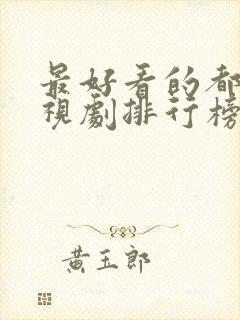 最好看的都
視劇排行榜
黃玉郎